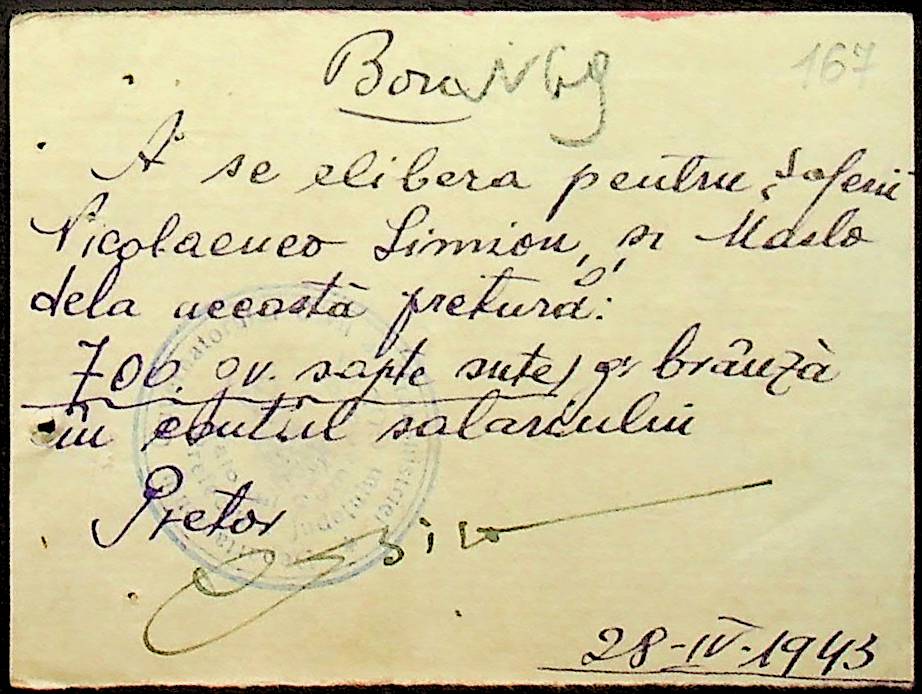 Bon N 69
167
A se elibera pentru șoferii
Nicolaenco Simion, și Maslo
dela această pretură:
700 gr. șapte sute) gr brânză
în contul salariului
Pretor
28-IV-1943